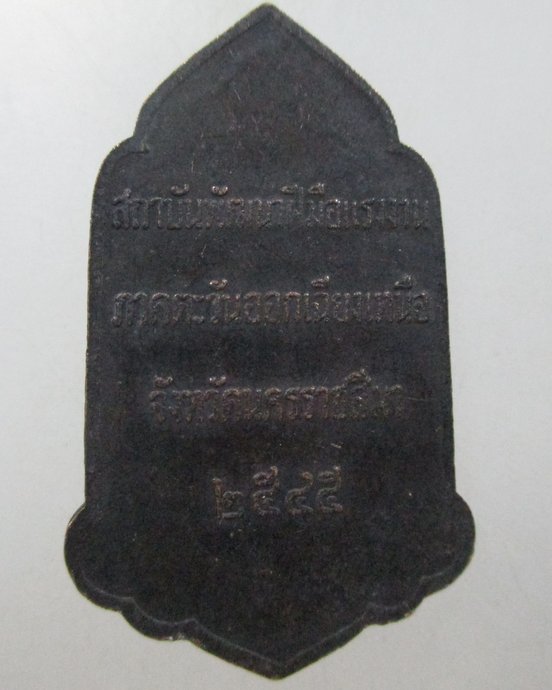 สถาบันพัฒนาฝีมือแรงงาน
ภาคตะวันออกเฉียงเหนือ
จังหวัดนครราชสีมา
๒๕๔๕